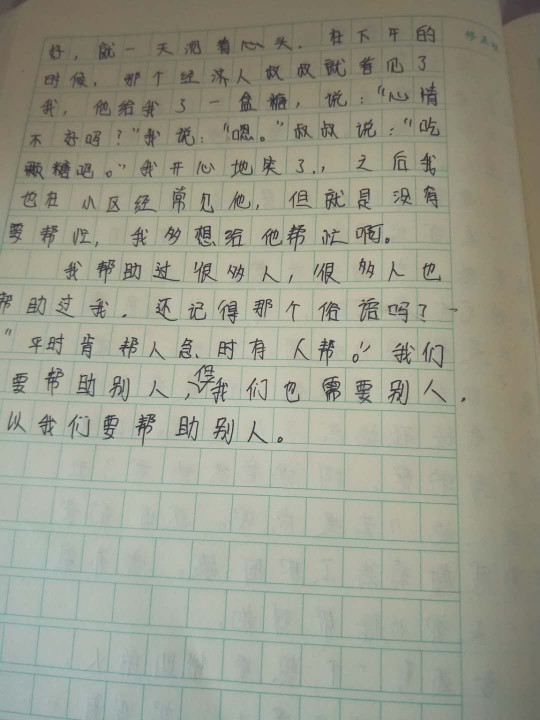 好，就一天泡着心头．在下午的
时候，那个经济人叔叔就看见了
我，他给我了一盒糖，说：“心情
不好吗？”我说：“嗯。”叔叔说：“吃
颗糖吧。”我开心地笑了．，之后我
也在小区经常见他，但就是没有
要帮忙，我多想给他帮忙啊。
我帮助过很多人，很多人也
帮助过我．还记得那个俗语吗？
“平时肯帮人急时有人帮。”我们
要帮助别人，但我们也需要别人．
以我们要帮助别人。